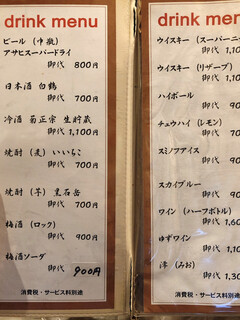 drink menu
ビール (中瓶)
アサヒスーパードライ
御代 800円
日本酒 白鶴
御代 700円
冷酒 菊正宗 生貯蔵
御代 1,100円
焼酎 (麦) いいちこ
御代 700円
焼酎 (芋) 黒石岳
御代 700円
梅酒 (ロック)
御代 900円
梅酒ソーダ
御代 900円
消費税・サービス料別途
drink men
ウイスキー (スーパーニ
御代 1,10
ウイスキー (リザーブ)
御代 1,10
ハイボール
御代 90
チュウハイ (レモン)
御代 70
スミノフアイス
御代 90
スカイブルー
御代 90
ワイン (ハーフボトル)
御代 1,60
ゆずワイン
御代 1,10
澪 (みお)
御代 1,30
消費税・サービス料別途